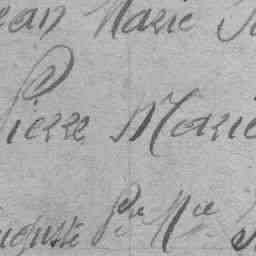 Jean Marie
Pierre Marie
Auguste Pre Mie